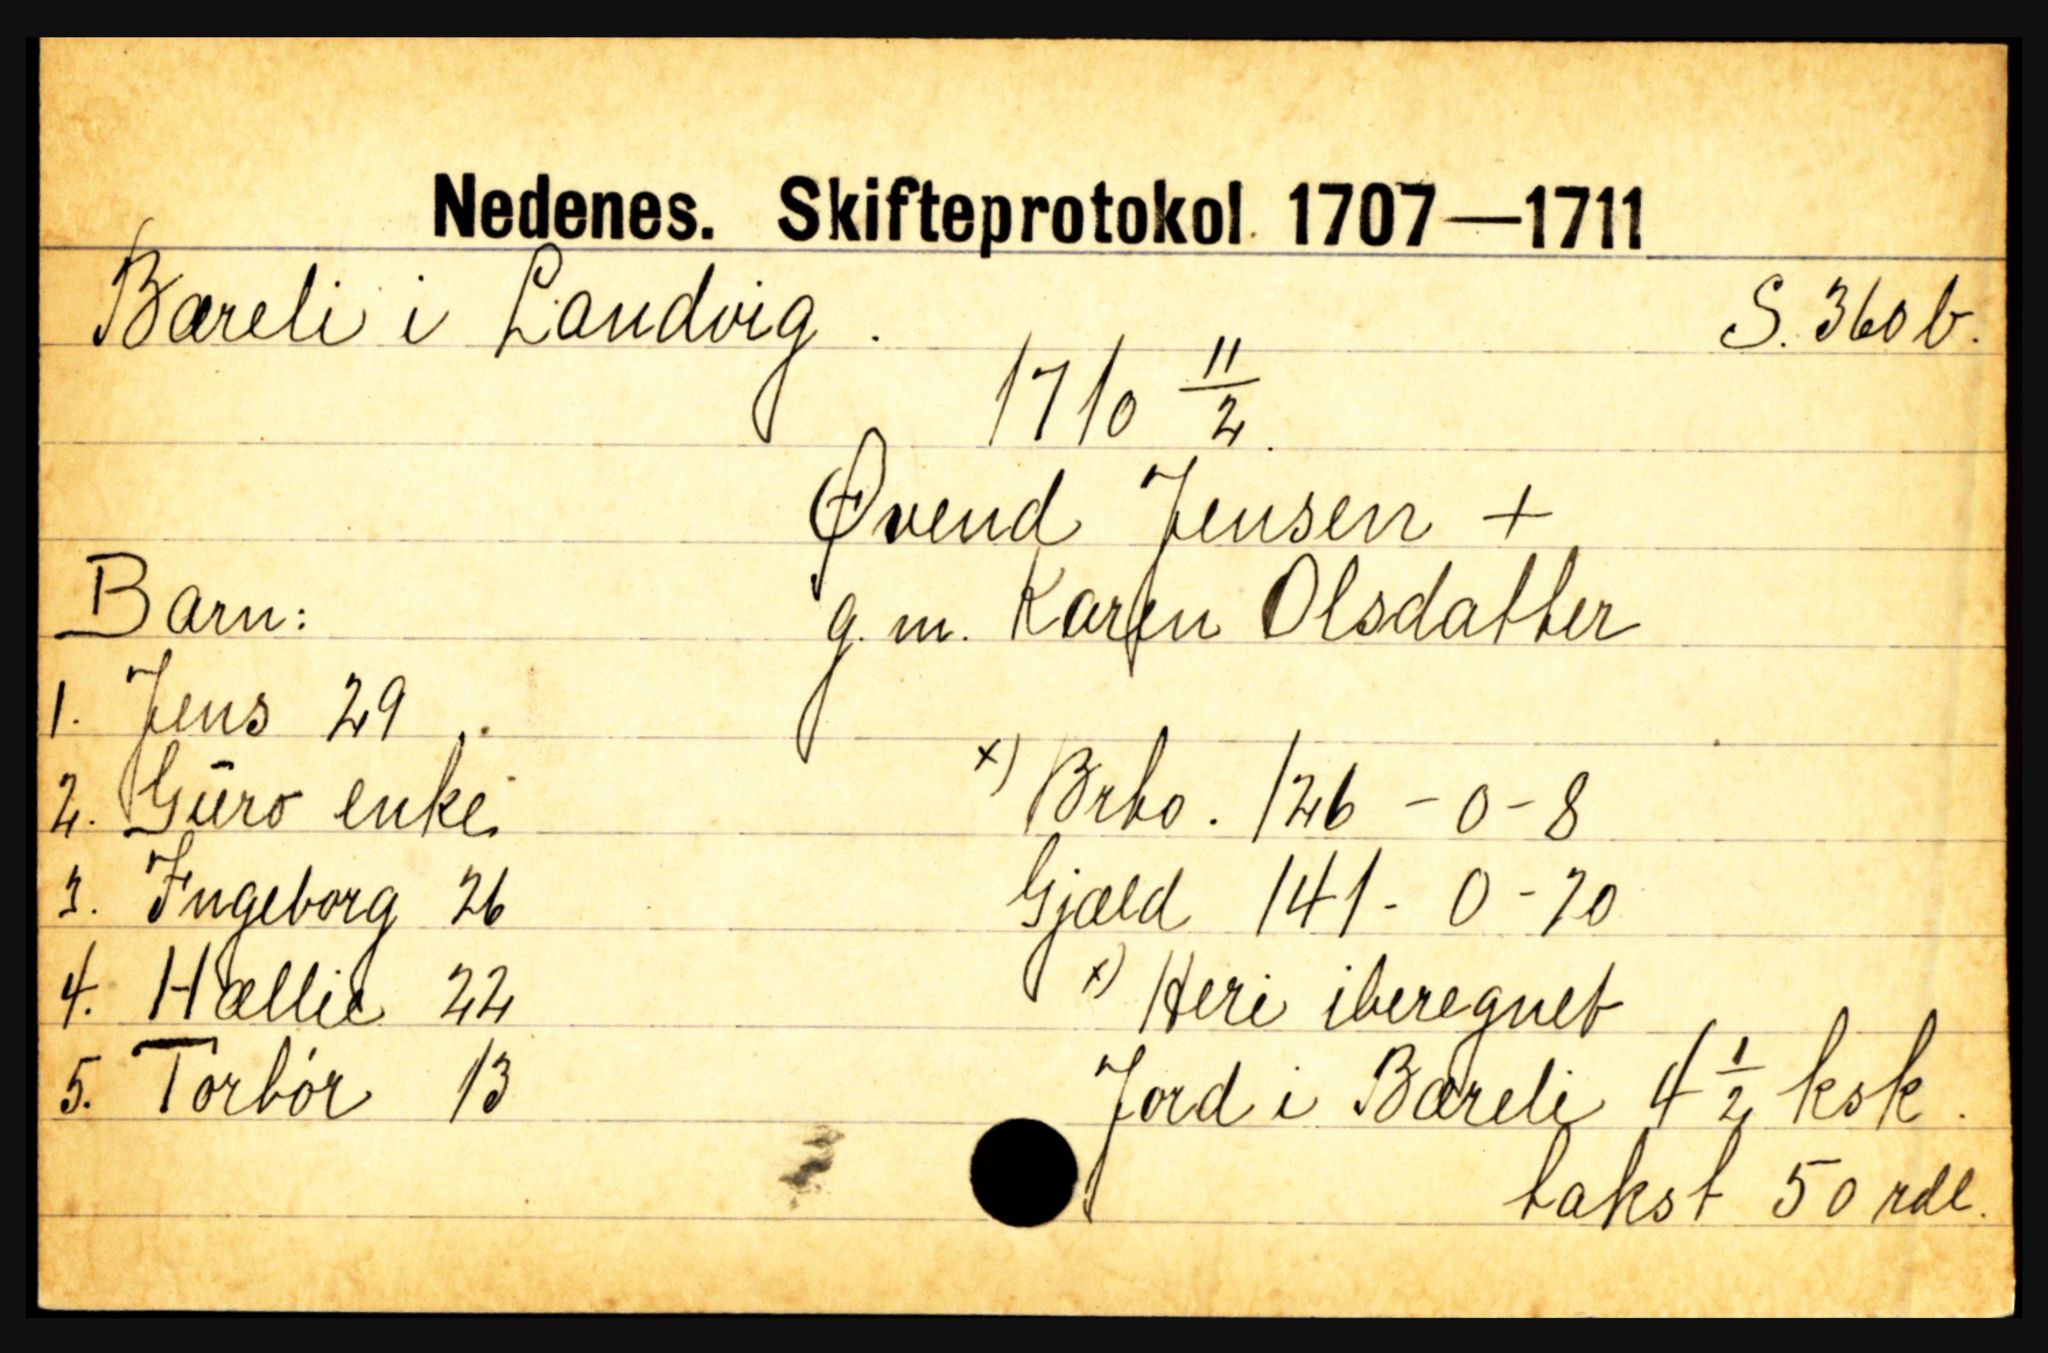 Nedenes. Skifteprotokol 1707—1711
Bæreli i Landvig.
S. 360 b.
1710 11/2.
Øvend Jensen +
g. m. Karen Olsdatter
Barn:
1. Jens 29
2. Gūro enke
3. Ingeborg 26
4. Hællie 22
5. Torbór 13
x) Brto. 126 - 0 - 8
Gjæld 141 - 0 - 20
x) Heri iberegnet
Jord i Bæreli 4 1/2 ksk.
takst 50 rdl.